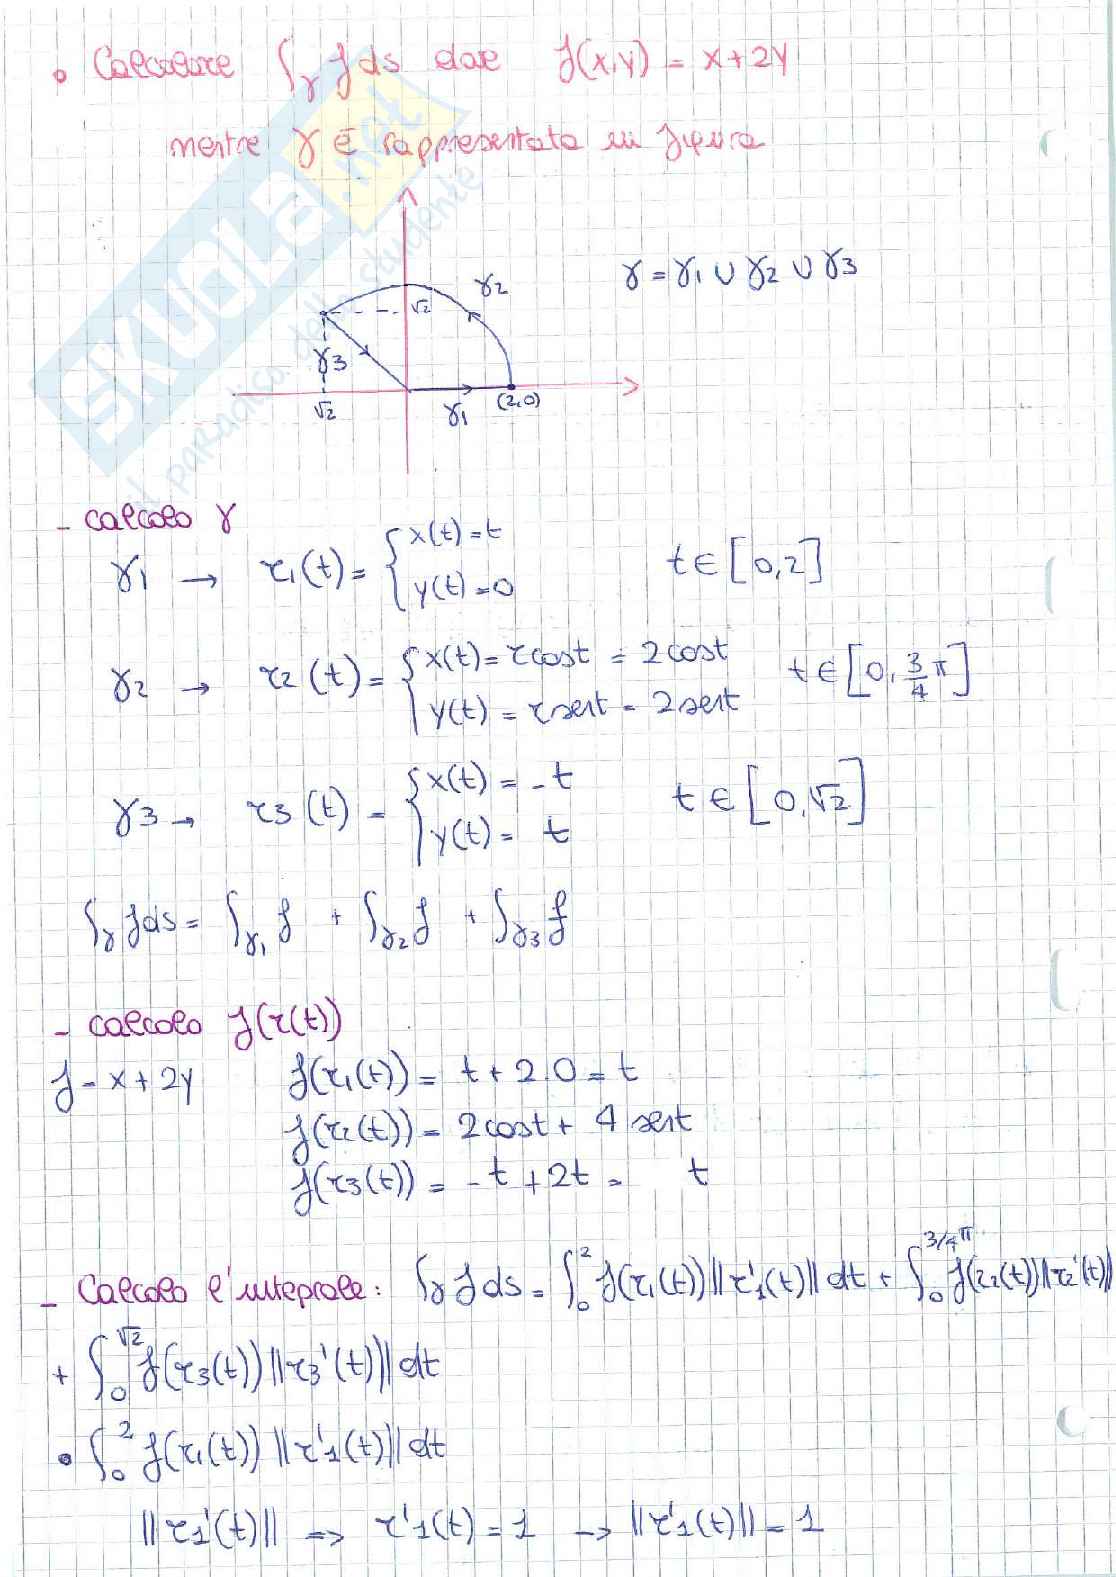 • Calcolare ∫γ f ds dove f(x,y) = x+2y
mentre γ È rappresentata in figura
SKUOLA.net
il paradiso dello studente
γ = γ1 ∪ γ2 ∪ γ3
γ2
√2
γ3
√2
γ1
(2,0)
- calcolo γ
γ1 → r1(t) = { x(t) = t t ∈ [0,2]
y(t) = 0
γ2 → r2(t) = { x(t) = r cost = 2cost t ∈ [0, 3/4 π]
y(t) = r sent = 2sent
γ3 → r3(t) = { x(t) = -t t ∈ [0,√2]
y(t) = t
∫γ f ds = ∫γ1 f + ∫γ2 f + ∫γ3 f
- calcolo f(r(t))
f = x + 2y f(r1(t)) = t + 2.0 = t
f(r2(t)) = 2cost + 4 sent
f(r3(t)) = -t + 2t = t
- Calcolo l'integrale: ∫γ f ds = ∫₀² f(r1(t)) ||r'1(t)|| dt + ∫₀^3/4π f(r2(t)) ||r2'(t)||
+ ∫₀^√2 f(r3(t)) ||r3'(t)|| dt
• ∫₀² f(r1(t)) ||r'1(t)|| dt
||r1'(t)|| => r'1(t) = 1 → ||r'1(t)|| = 1